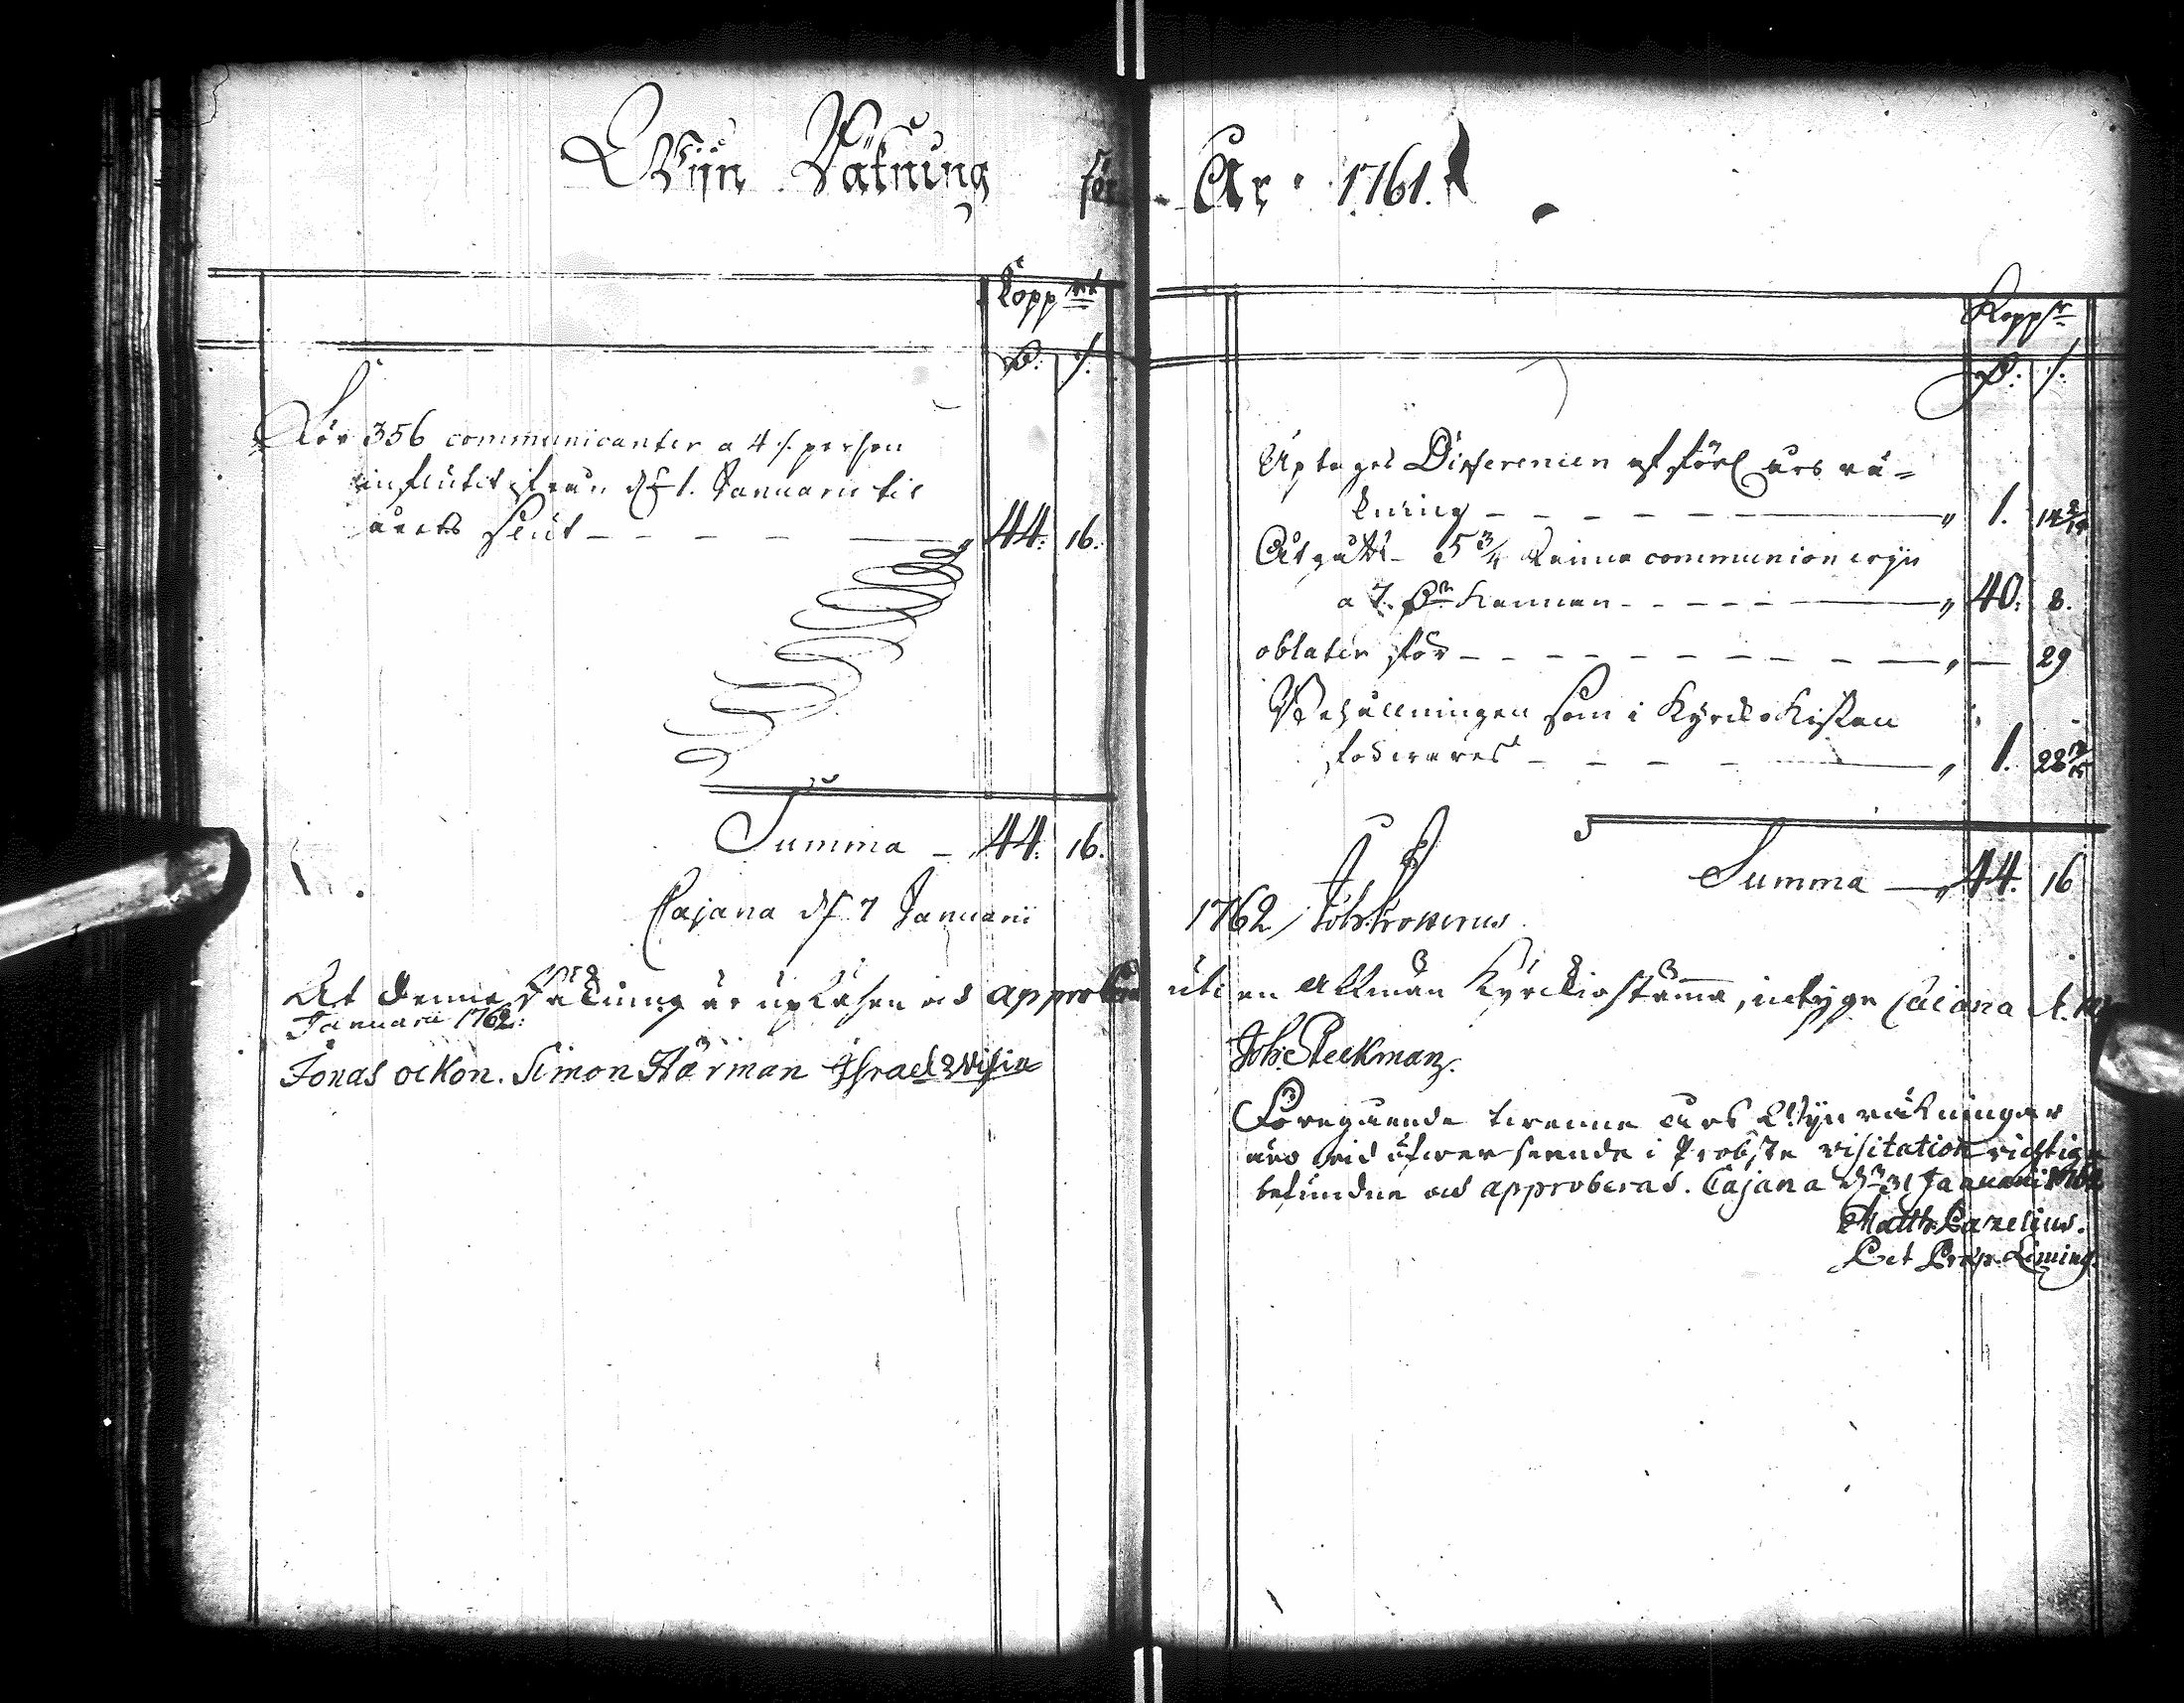 Wijn Räkning för År 1761.
Kopp mt
D. s.
För 356 communicanter a 4 s. person
influtit ifrån d. 1. Januarii til
årets slut — 44. 16.
Summa — 44. 16.
Cajana d. 7 Januarii
Kopp mt
D. s.
Uptages Differencen af förl. års rä=
kning — 1. 14
Utgått 5 3/4 Kanna communion wijn
a 7. D. Kannan — 40. 8.
oblater för — 29
Behållningen som i Kyrckio Kistan
förwares — 1. 22
Summa — 44. 16
1762
At denna Räkning är upläsen och approberad uti en allmän Kyrckiostämma, intyga Cajana d.
Januarii 1762.
Jonas ockon. Simon Härman Israel
Joh: Peckman.
Föregående trenne års Wijn räkningar
äro wid öfwerseende i Probste visitation richtiga
befundne och approberas. Cajana d. 31 Januarii
Matth. Carelius.